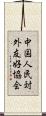 中国人民対外友好協会